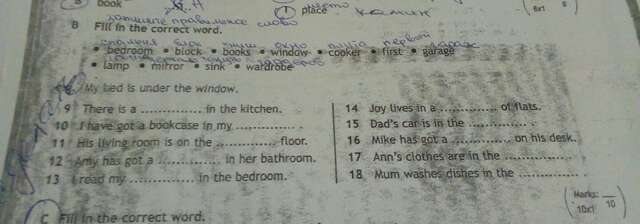 book
place
запишите правильное слово
B Fill in the correct word.
• bedroom • block • books • window • cooker • first • garage
• lamp • mirror • sink • wardrobe
My bed is under the window.
9 There is a .............. in the kitchen.
10 I have got a bookcase in my .............. .
11 His living room is on the .............. floor.
12 Amy has got a .............. in her bathroom.
13 I read my .............. in the bedroom.
14 Joy lives in a .............. of flats.
15 Dad's car is in the .............. .
16 Mike has got a .............. on his desk.
17 Ann's clothes are in the .............. .
18 Mum washes dishes in the .............. .
Marks: 10x1 10
C Fill in the correct word.